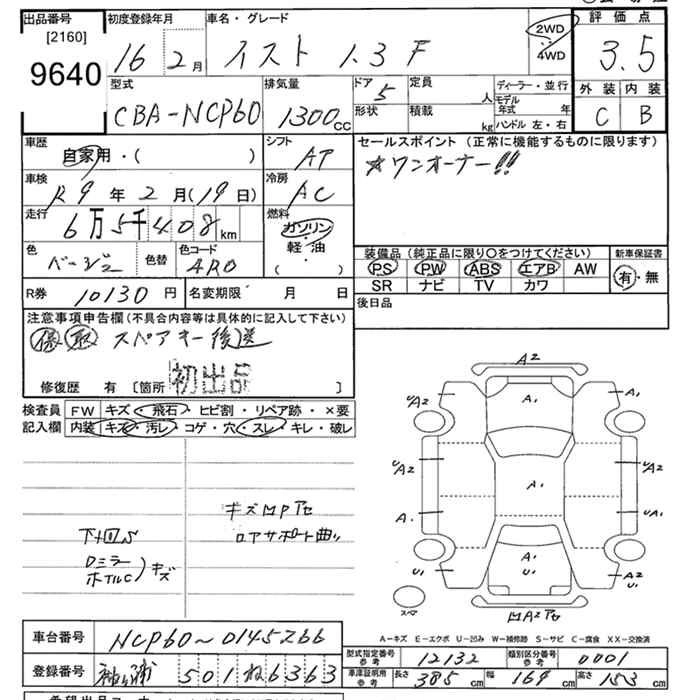 出品番号 初度登録年月 車名・グレード 評価点
[2160]
9640
16 2月 イスト 1.3 F 2WD 4WD 3.5
型式 排気量 ドア 定員 人 ディーラー・並行 外装 内装
CBA-NCP60 1300cc 5 モデル年式 年 C B
形状 積載 kg ハンドル 左・右
車歴 シフト セールスポイント (正常に機能するものに限ります)
自家用・( ) AT ☆ワンオーナー!!
車検 冷房
R9年2月(19日) AC
走行 燃料
6万5千408km ガソリン
色 色替 色コード 軽油
ベージュ 4R0 ( )
装備品 (純正品に限り〇をつけてください) 新車保証書
PS PW ABS エアB AW 有・無
SR ナビ TV カワ
R券 10130円 名変期限 月 日 後日品
注意事項申告欄(不具合内容等は具体的に記入して下さい)
保 取 スペアキー後送
修復歴 有 〔箇所 初出品 〕
検査員 FW キズ・飛石・ヒビ割・リペア跡・×要
記入欄 内装 キズ・汚レ・コゲ・穴・スレ・キレ・破レ
A2
A1
A2
A1
A2
A2
A1
A1
A1
A1
U1
A2
U1
A2
スペア
キズ凹Pアセ
下廻サ
ロアサポート曲り
Dミラー
ホイルC キズ
A-キズ E-エクボ U-凹み W-補修跡 S-サビ C-腐食 XX-交換済
車台番号 NCP60~0145266
型式指定番号 参考 12132 類別区分番号 参考 0001
登録番号 袖ヶ浦 501 ね 6363
車庫証明用 参考 長さ 385cm 幅 169cm 高さ 153cm